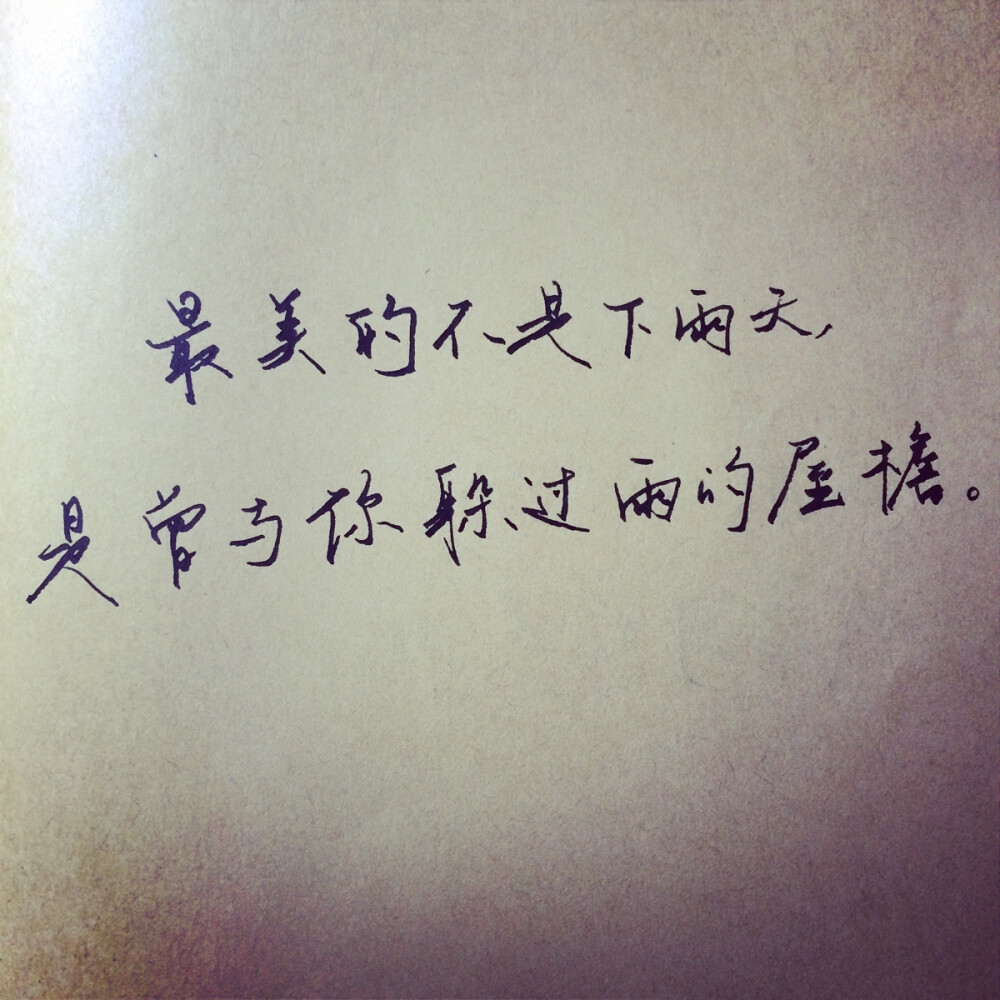 最美的不是下雨天,
是曾与你躲过雨的屋檐。